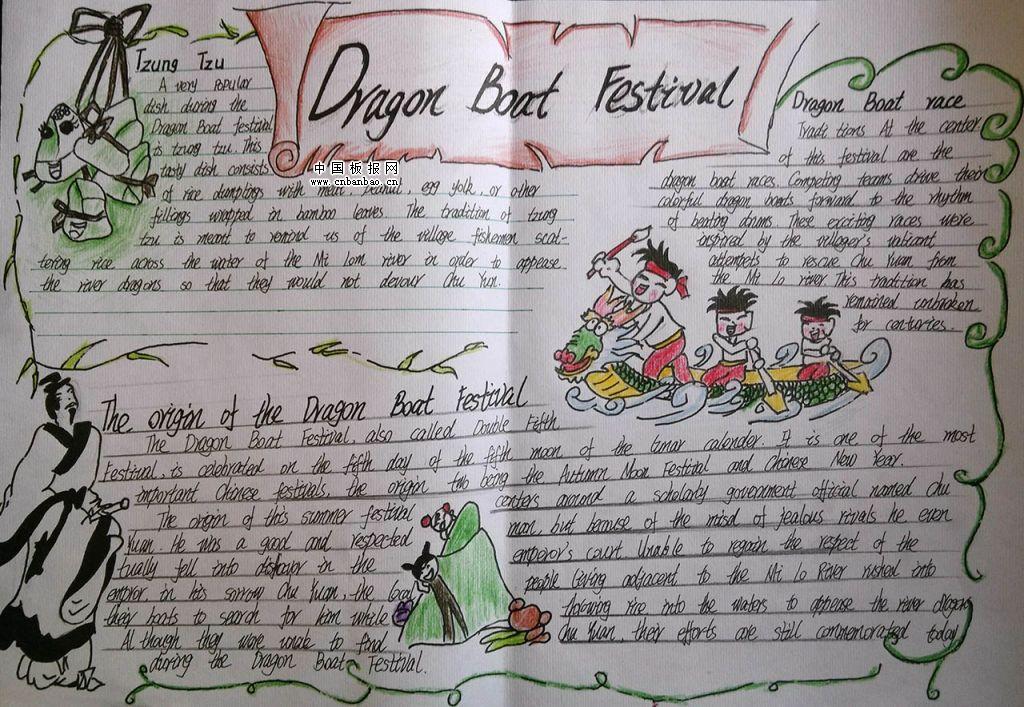 Dragon Boat Festival
中国板报网
www.cnbanbao.cn
Tzung Tzu
A very popular
dish during the
Dragon Boat festival
is tzung tzu. This
tasty dish consists
of rice dumplings with meat, peanut, egg yolk, or other
fillings wrapped in bamboo leaves. The tradition of tzung
tzu is meant to remind us of the village fishermen scat-
tering rice across the water of the Mi Lom river in order to appease
the river dragons so that they would not devour Chu Yun.
Dragon Boat race
Traditions At the center
of this festival are the
dragon boat races. Competing teams drive their
colorful dragon boats forward to the rhythm
of beating drums. These exciting races were
inspired by the villager's valicant
attempts to rescue Chu Yuan from
the Mi Lo river. This tradition has
remained unbroken
for centuries.
The origin of the Dragon Boat Festival
The Dragon Boat Festival, also called Double Fifth
Festival, is celebrated on the fifth day of the fifth moon of the lunar calender. It is one of the most
important Chinese festivals, the origin two being the Autumn Moon Festival and Chinese New Year.
The origin of this summer festival centers around a scholarly government official named Chu
Yuan. He was a good and respected man, but because of the misd of jealous rivals he even
tually fell into disfavor in the emperor's court. Unable to regain the respect of the
empror in his sorrow Chu Yuan, the local people living adjacent to the Mi Lo River rushed into
their boats to search for him while throwing rice into the waters to appease the river dragons
Al though they were unale to find Chu Yuan, their efforts are still commemorated today
during the Dragon Boat Festival.